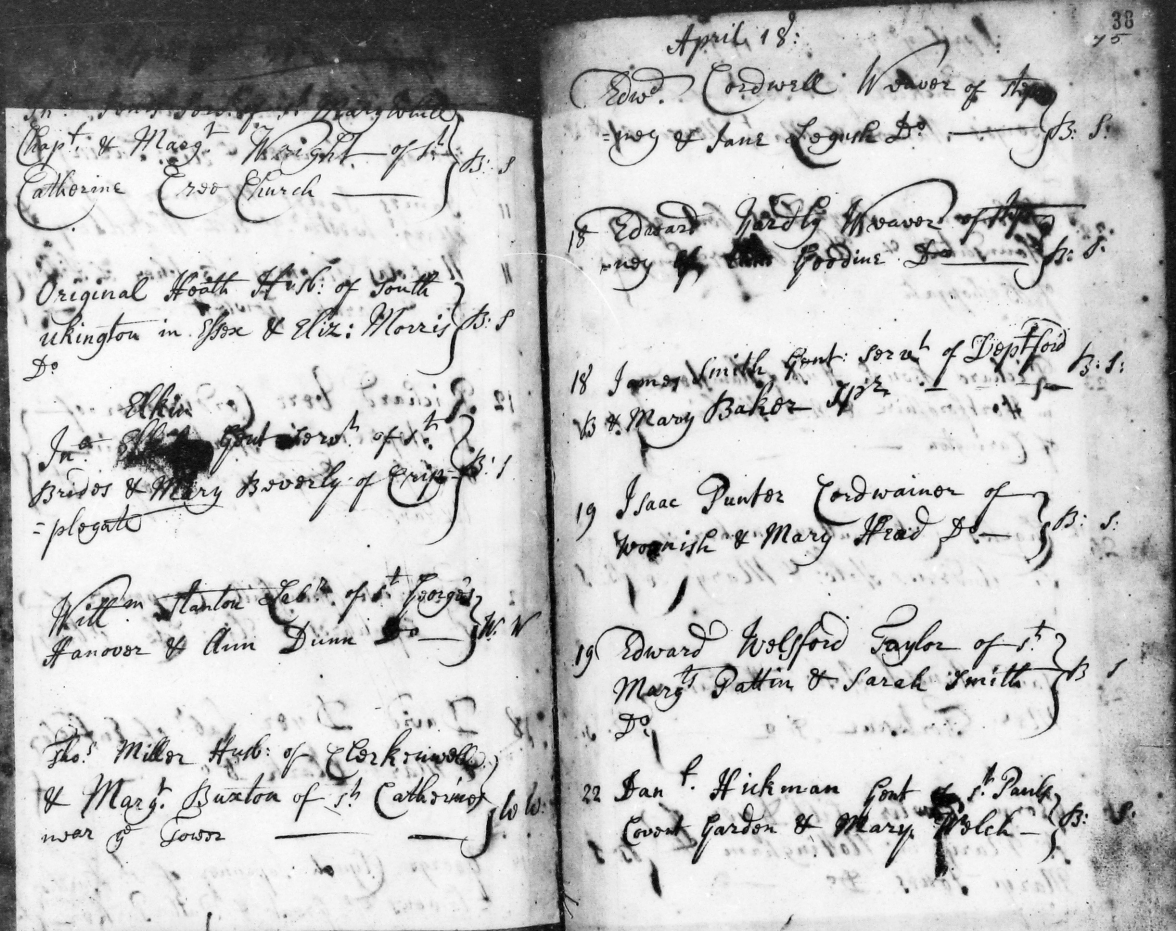 St Mary Whitt
Chapt. & Margt Wright of St B: S
Catherine Cree Church
Original Heath Husb: of South
ukington in Essex & Eliz: Morris B: S
Do
Elkin
Jno Gent Servt of St
Brides & Mary Beverly of Crip= B: S
=plegate
Willm Stanton Labr of St George's
Hanover & Ann Dunn Do W. W
Thos Miller Husb: of Clerkenwell
& Margt. Buxton of St Catherines W W:
near ye Tower
38
75
April 18:
Edwd. Cordwell Weaver of Step
=ney & Jane Do B: S:
18 Edward Hardly Weaver of Step
=ney Goodine Do B: S.
18 James Smith Gent: Servt of Deptford B: S:
& Mary Baker Spr
19 Isaac Punter Cordwainer of
Woolnish & Mary Head Do B: S:
19 Edward Welsford Taylor of St
Margts Pattin & Sarah Smith B S
Do
22 Danl. Hickman Gent of St Pauls
Covent Garden & Mary Welch B: S.